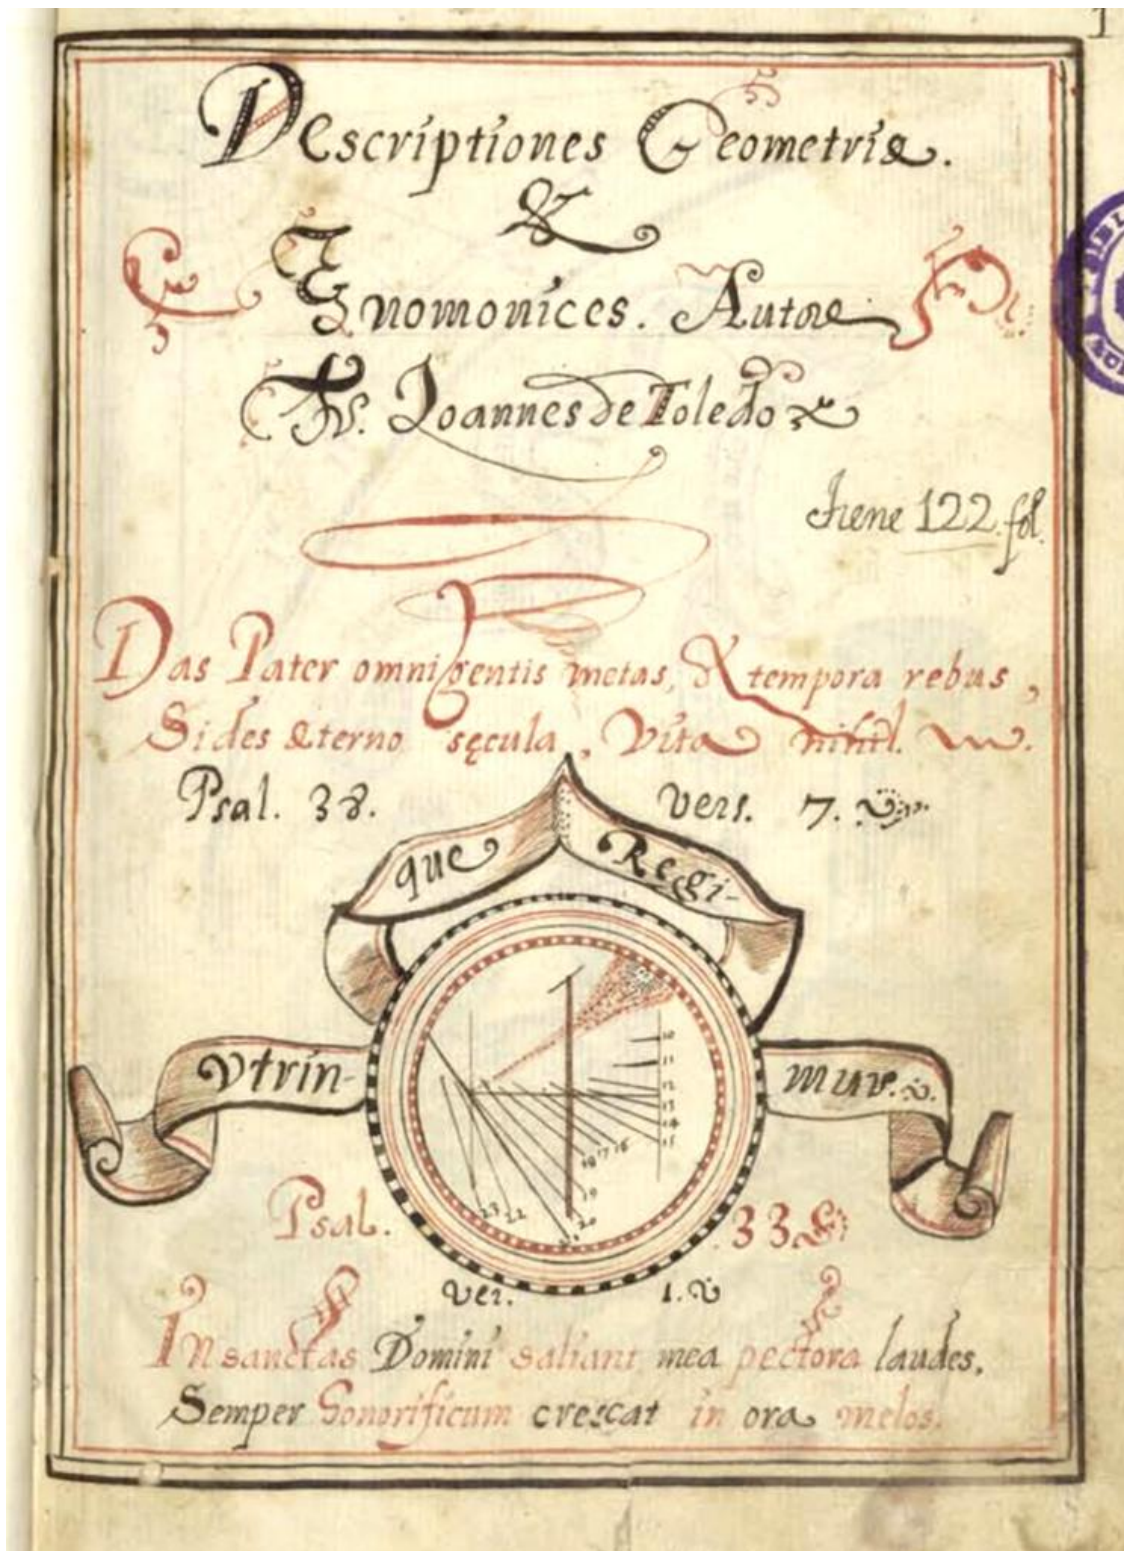 1
Descriptiones Geometriæ.
&
Gnomonices. Autore
Fr. Joannes de Toledo
tiene 122 fol.
Das Pater omnigentis metas, & tempora rebus,
Sides æterno sęcula, Vita nihil.
Psal. 38. Vers. 7.
que Regi-
Vtrin- mur.
10
11
12
13
14
15
18 17 16
19
20
23 22
Psal. 33
ver. 1.
In sanctas Domini saliant mea pectora laudes.
Semper Sonorificum crescat in ora melos.